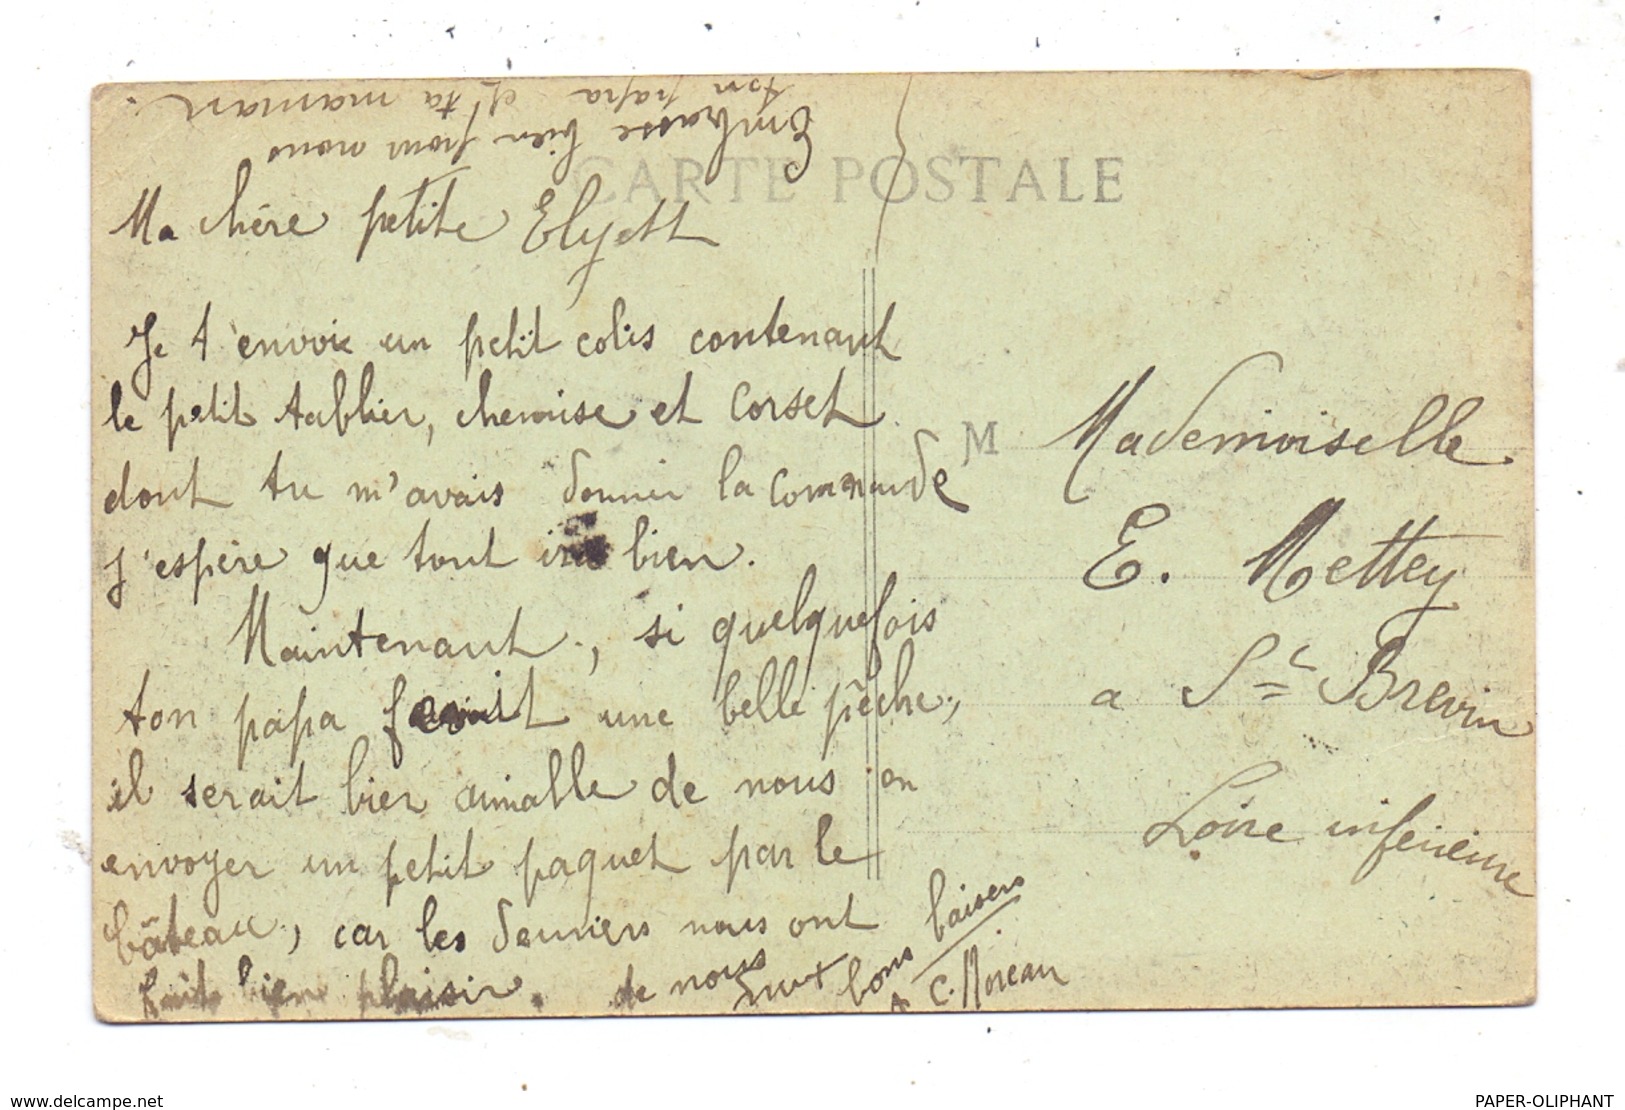 Embrasse bien pour nous
ton papa et ta maman.
CARTE POSTALE
Ma chère petite Elyett
Je t'envoie un petit colis contenant
le petit tablier, chemise et corset
dont tu m'avais donner la commande
j'espère que tout ira bien.
Maintenant, si quelquefois
ton papa ferait une belle pêche,
il serait bien aimable de nous en
envoyer un petit paquet par le
bâteau, car les derniers nous ont
fait bien plaisir. de nous
bons baisers
C. Moreau
M Mademoiselle
E. Mettey
a St Brevin
Loire inferieure
www.delcampe.net
PAPER-OLIPHANT